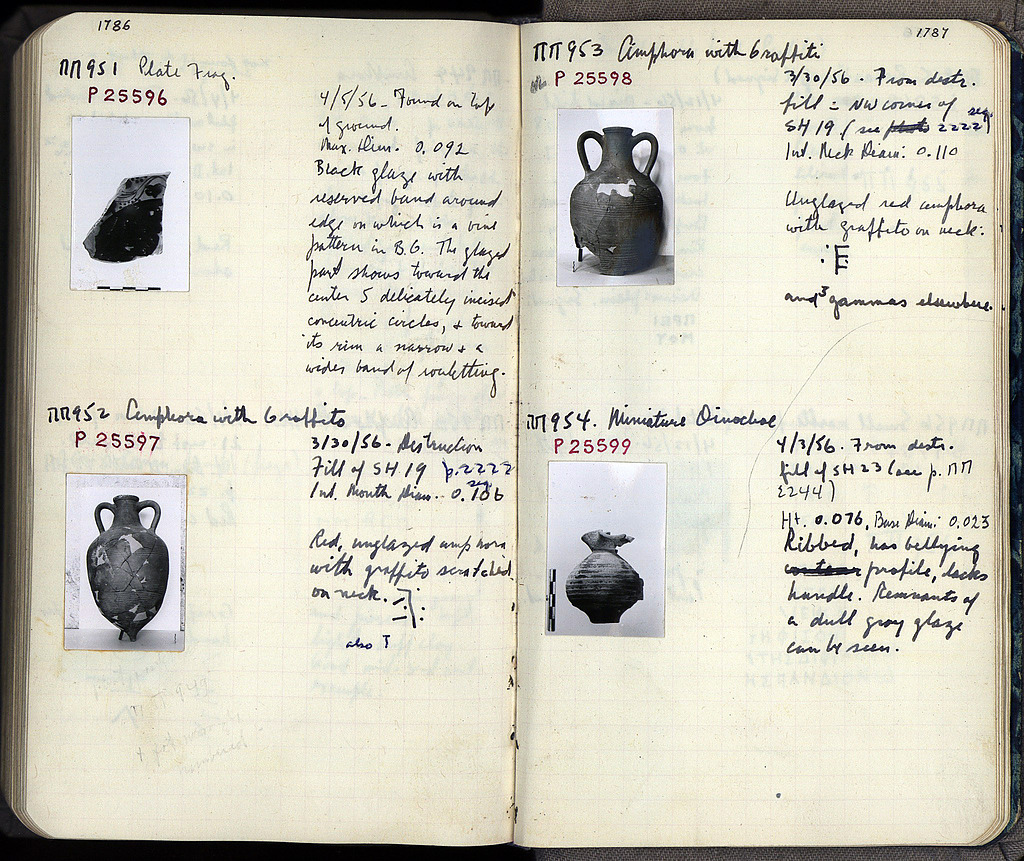 1786
ΠΠ951 Plate Frag.
P 25596
4/5/56 - Found on top
of ground.
Max. Dim. 0.092
Black glaze with
reserved band around
edge on which is a vine
pattern in B.G. The glazed
part shows toward the
center 5 delicately incised
concentric circles, & toward
its rim a narrow & a
wider band of rouletting.
ΠΠ952 Amphora with Graffito
P 25597
3/30/56 - Destruction
Fill of SH 19 p. 2222
seq.
Int. Mouth Diam. 0.106
Red, unglazed amphora
with graffito scratched
on neck.
also
1787
ΠΠ953 Amphora with Graffiti
P 25598
3/30/56 - From destr.
fill = NW corner of
SH 19 (see 2222 seq.)
Int. Neck Diam: 0.110
Unglazed red amphora
with graffito on neck:
:E
and 3 gammas elsewhere.
ΠΠ954. Miniature Oinochoe
P 25599
4/3/56. From destr.
fill of SH 23 (see p. ΠΠ
2244)
Ht. 0.076, Base Diam: 0.023
Ribbed, has bellying
profile, lacks
handle. Remnants of
a dull gray glaze
can be seen.